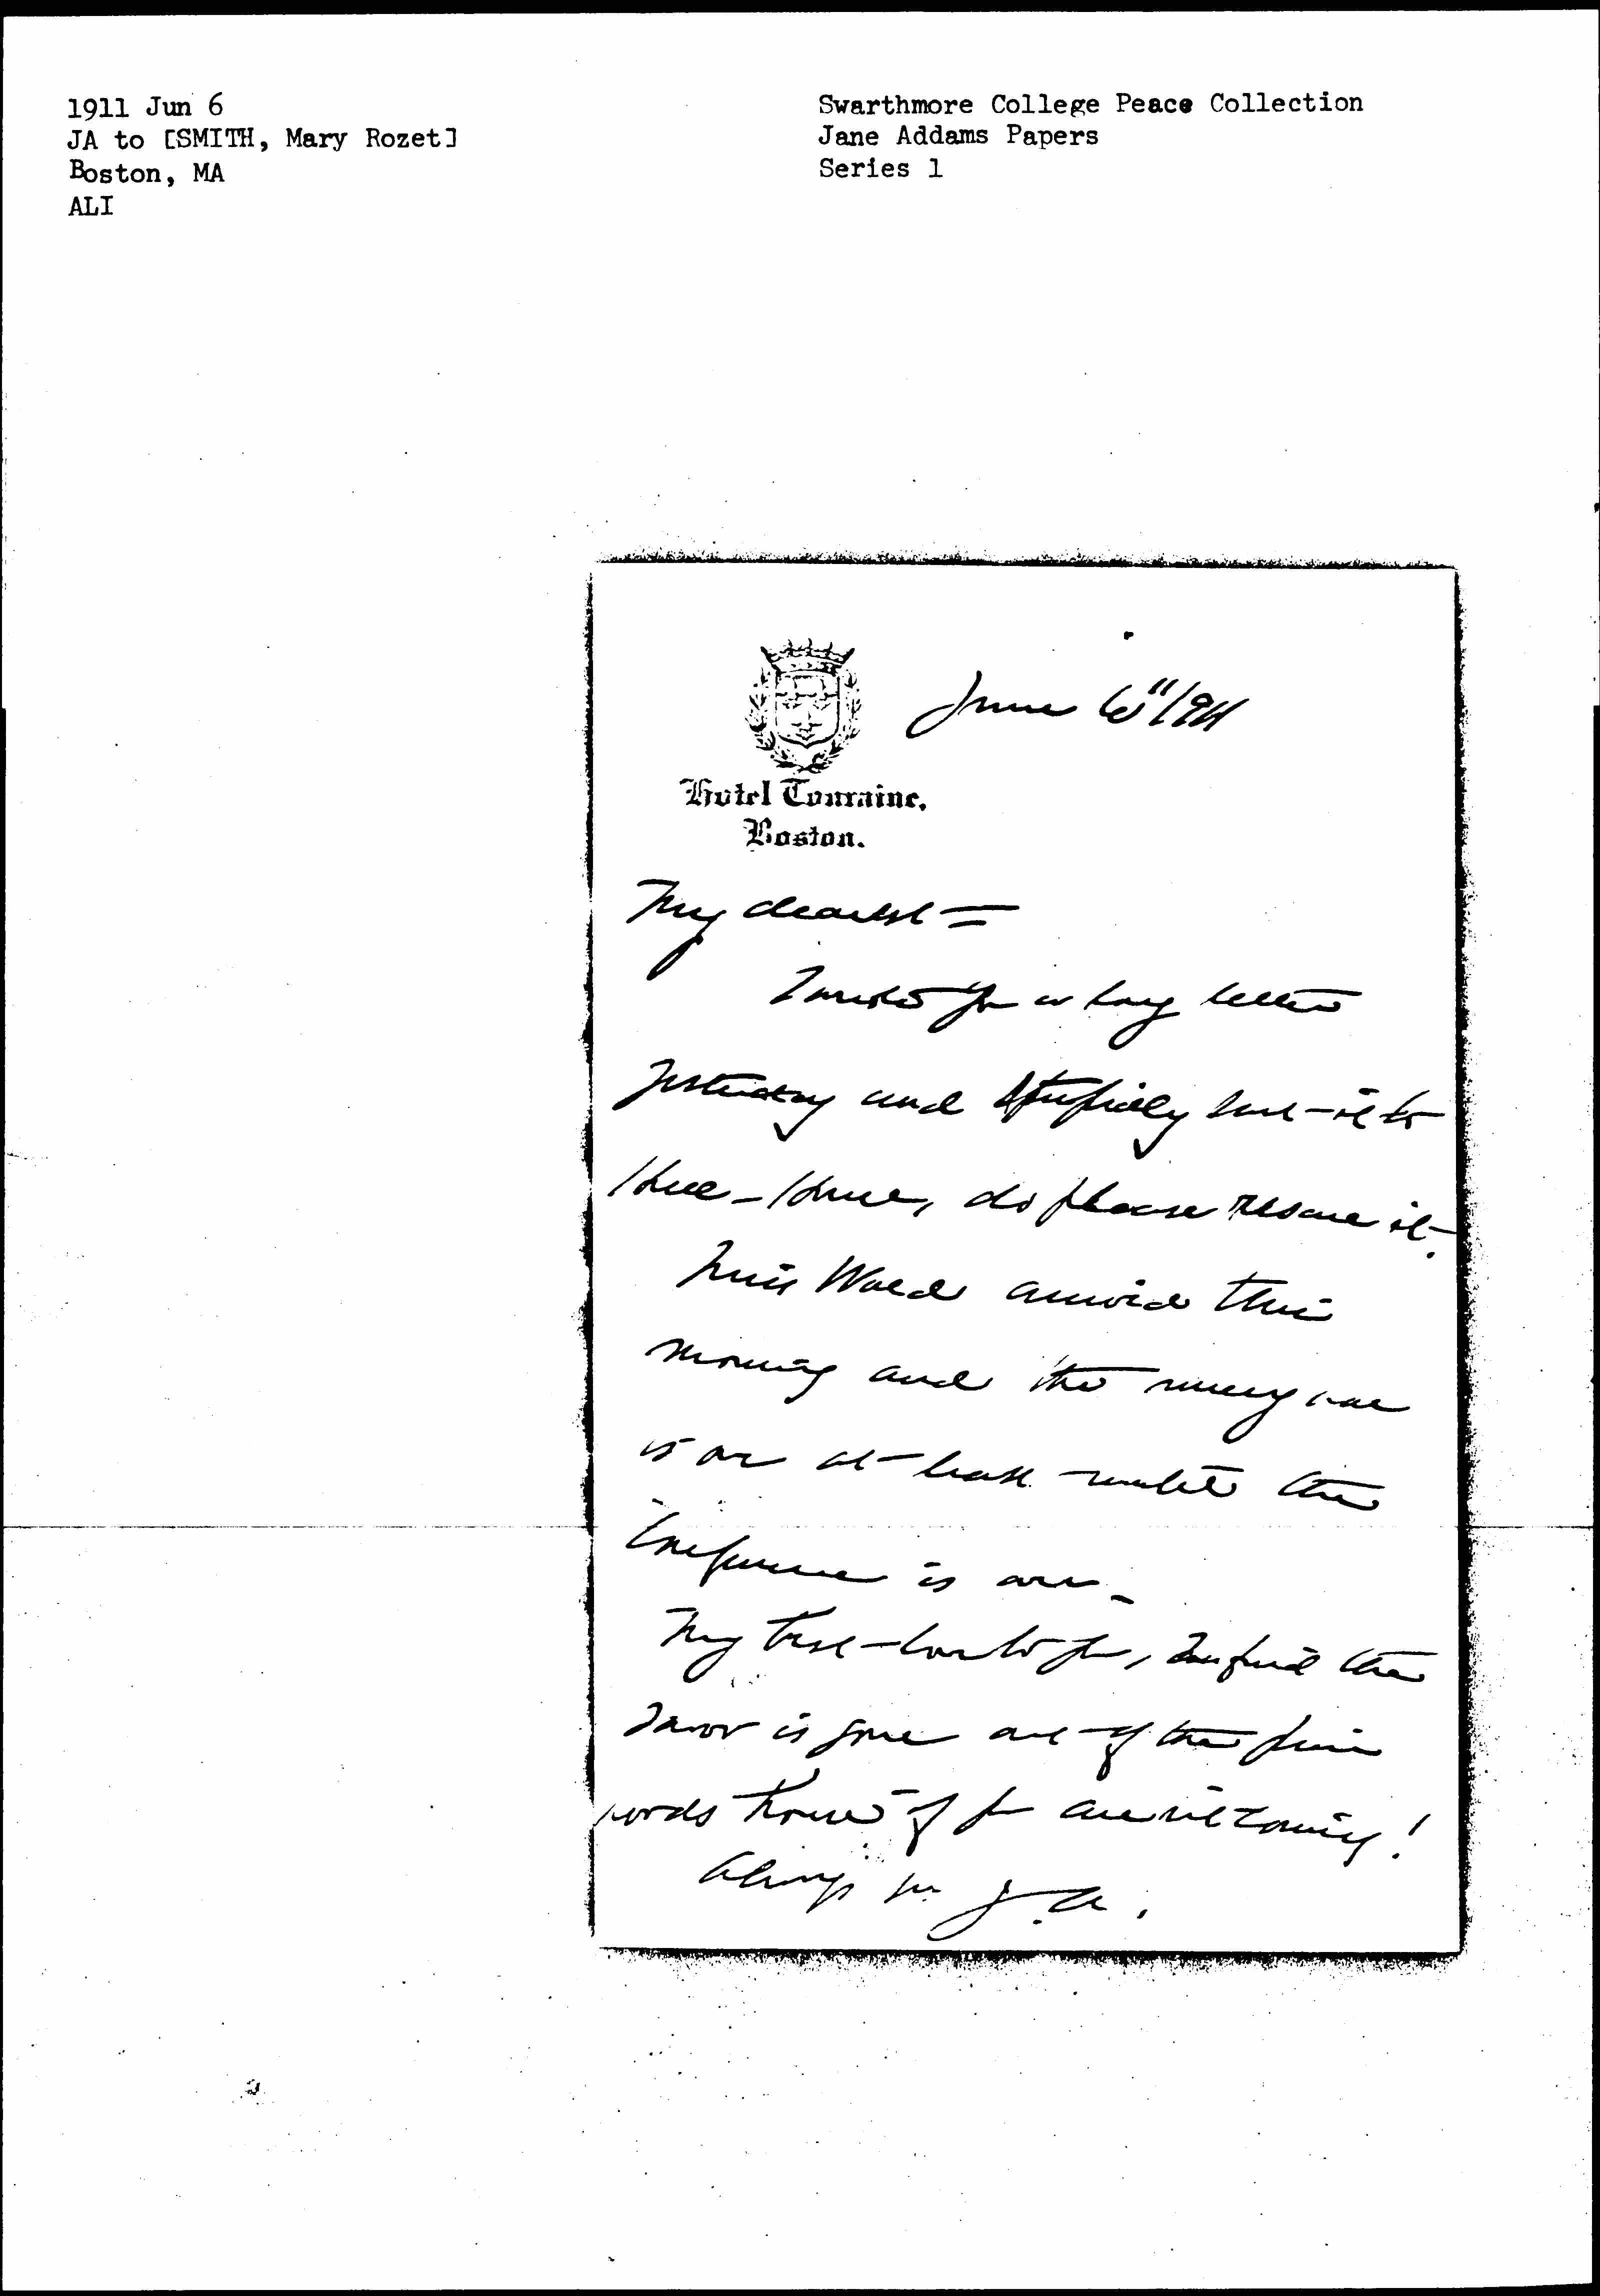 1911 Jun 6
JA to [SMITH, Mary Rozet]
Boston, MA
ALI
Swarthmore College Peace Collection
Jane Addams Papers
Series 1
June 6" 1911
Hotel Touraine,
Boston.
My dearest =
I wrote you a long letter
yesterday and stupidly sent it to
Hull-House, do please rescue it.
Miss Wald arrived this
morning and the
is on at least until the
Conference is over.
My best love to you, I find the
savor is gone out of the fine
words home if you are not coming!
Always yr J.A.